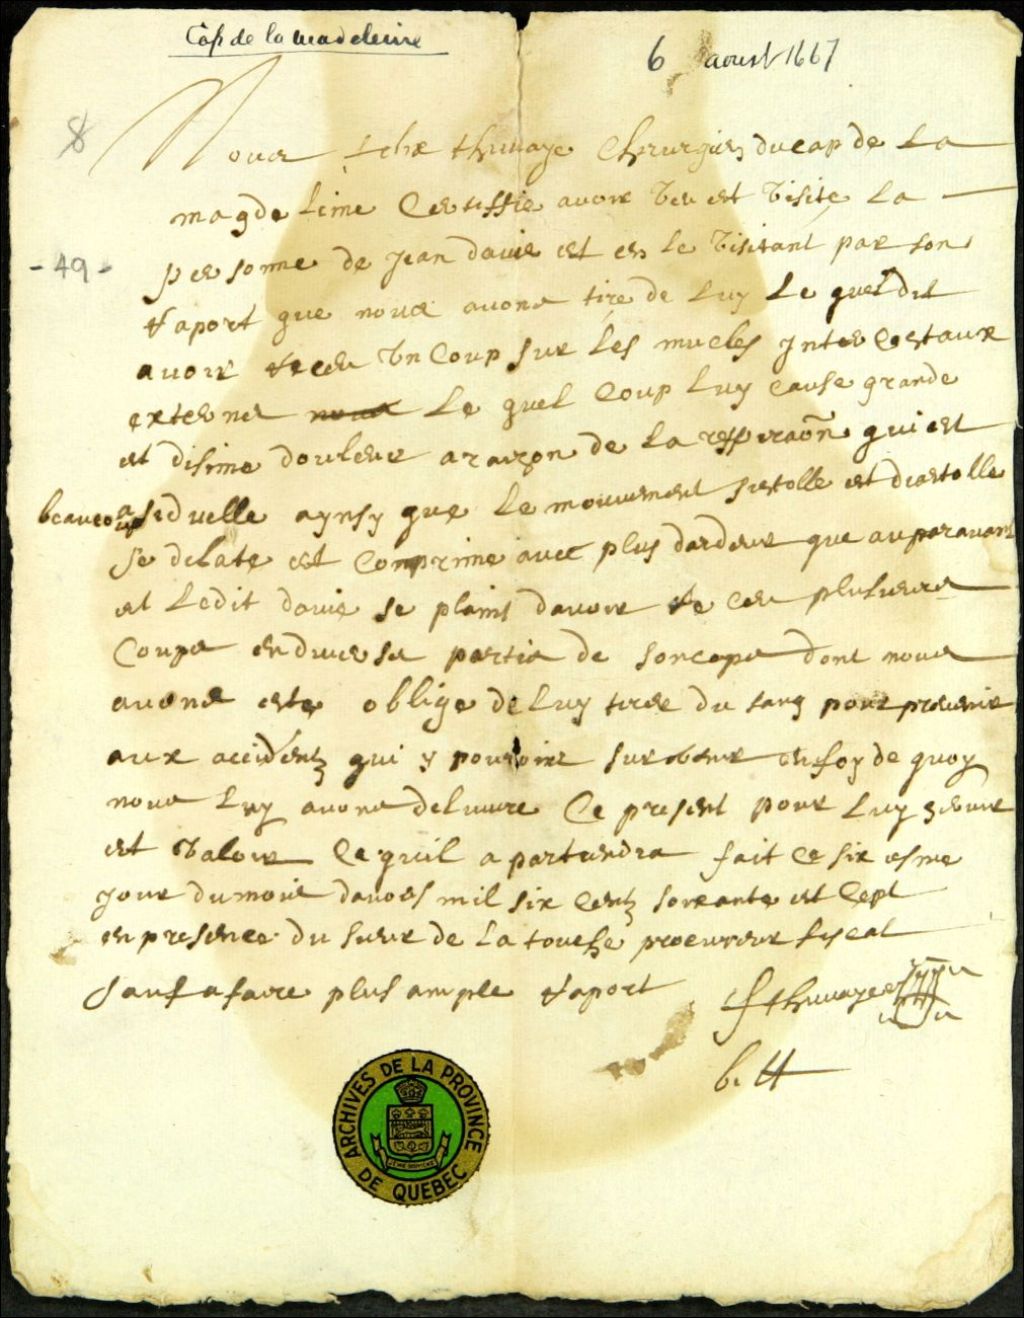 Cap de la Madeleine
6 aoust 1667
8
- 49 -
Nous thuvaye Chirurgien du cap de La
magdeleine Certiffie avoir veu et visite La
personne de Jean davis et en le visitant par son
raport que nous avons tire de luy Le quel dit
avoir receu un Coup sur Les mucles Inter Costaux
externes nous Le quel Coup luy cause grande
et disime douleur a raizon de la respiraõn qui est
beaucoup aseduelle aynsy que Le mouvement sistolle et diastolle
se dilate et Comprime avec plus dardeur que auparavant
et Ledit davis se plaint davoir receu plusieurs
Coups en diverse partie de son cops dont nous
avons este oblige de luy tirer du sang pour prevenir
aux accidentz qui y pouroint survenir en foy de quoy
nous luy avons delivvre Ce present pour luy servir
et valoir Ce quil apartiendra fait Ce sixiesme
jour du mois daous mil six Centz soixante et Sept
en presence du sieur de La touche procureur fiscal
sauf a faire plus ample raport
fthuvaye
ARCHIVES DE LA PROVINCE DE QUEBEC